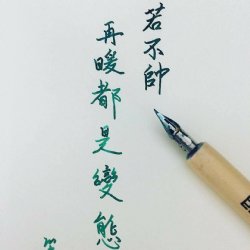 若不帥
再暖都是變態